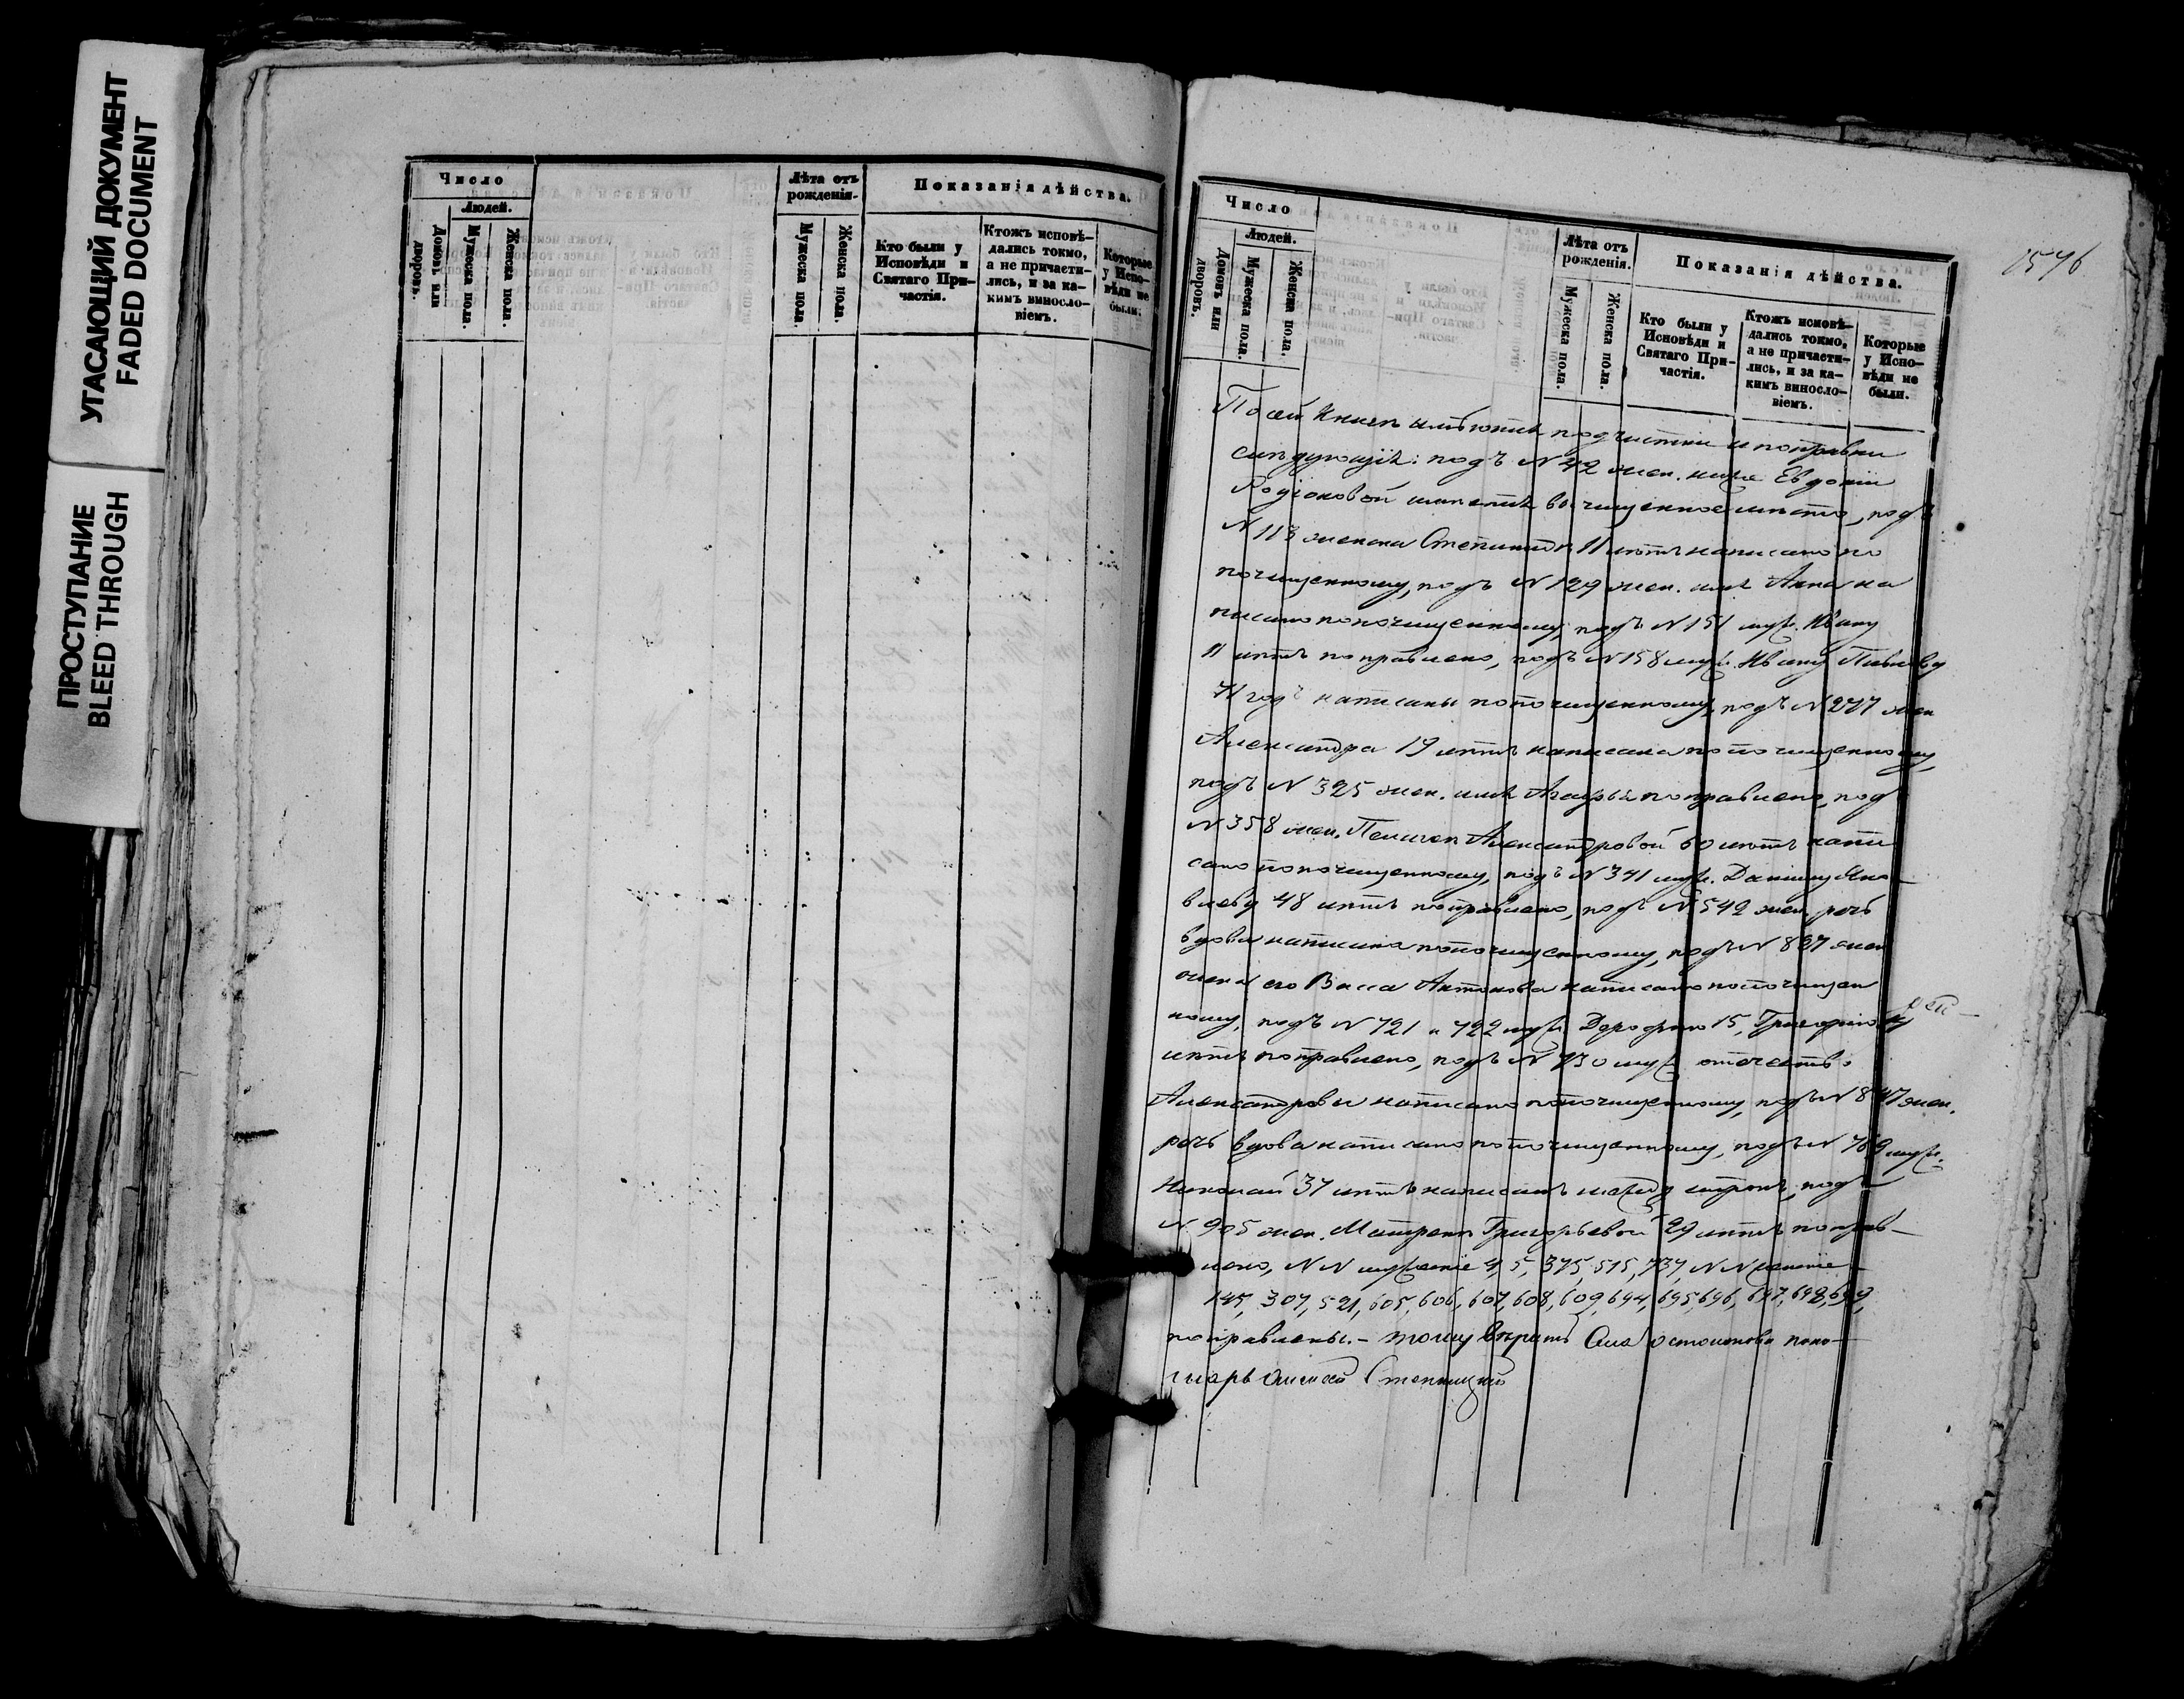 УГАСАЮЩИЙ ДОКУМЕНТ
FADED DOCUMENT
ПРОСТУПАНИЕ
BLEED THROUGH
Число
Людей.
Домовъ или дворовъ.
Мужеска пола.
Женска пола.
Лѣта отъ
рожденія.
Мужеска пола.
Женска пола.
Показанія дѣйства.
Кто были у
Исповѣди и
Святаго При-
частія.
Ктожъ исповѣ-
дались токмо,
а не причасти-
лись, и за ка-
кимъ винословіемъ.
Которые
у Испо-
вѣди не
были.
1576
Число
Людей.
Домовъ или дворовъ.
Мужеска пола.
Женска пола.
Лѣта отъ
рожденія.
Мужеска пола.
Женска пола.
Показанія дѣйства.
Кто были у
Исповѣди и
Святаго При-
частія.
Ктожъ исповѣ-
дались токмо,
а не причасти-
лись, и за ка-
кимъ виносло-
віемъ.
Которые
у Испо-
вѣди не
были.
По сей книгѣ имѣются подчистки и поправки
слѣдующія: подъ N 42 жен. ниже Евдокіи
Родіоновой вычищенное мѣсто, подъ
N 113 женска Степанида 11 лѣтъ написано по
почищенному, подъ N 129 жен. имя Анна на
писано по почищенному, подъ N 151 муж. Ивану
11 лѣтъ поправлено, подъ N 158 муж. Ивану
71 годъ написаны по почищенному, подъ N 277 жен
Александра 19 лѣтъ написана по почищенному,
подъ N 325 жен. имя поправлено, под
N 358 жен. Пелагеи Александровой 60 лѣтъ напи
сано по почищенному, подъ N 371 муж. Даниилу Яко-
влеву 48 лѣтъ поправлено, подъ N 542 жен. рѣчь
вдова написана по почищенному, подъ N 827 жен
жена его Васса Антонова написано по почищен
ному, подъ N 721 и 722 муж. Дорофею 15, Григорію
лѣтъ поправлено, подъ N 730 муж. отечество
Александровъ написано по почищенному, подъ N 847 жен.
рѣчь вдова написано по почищенному, подъ N 769 муж.
Николай 37 лѣтъ написанъ между строкъ, под
N 905 жен. Матрены Григорьевой 29 лѣтъ поправ-
лено, N N мужескіе 4, 5, 375, 515, 737, N N женскіе
147, 307, 521, 605, 606, 607, 608, 609, 694, 695, 696, 697, 698, 699,
поправлены. – Точму вѣритъ поно-
марь Алексѣй